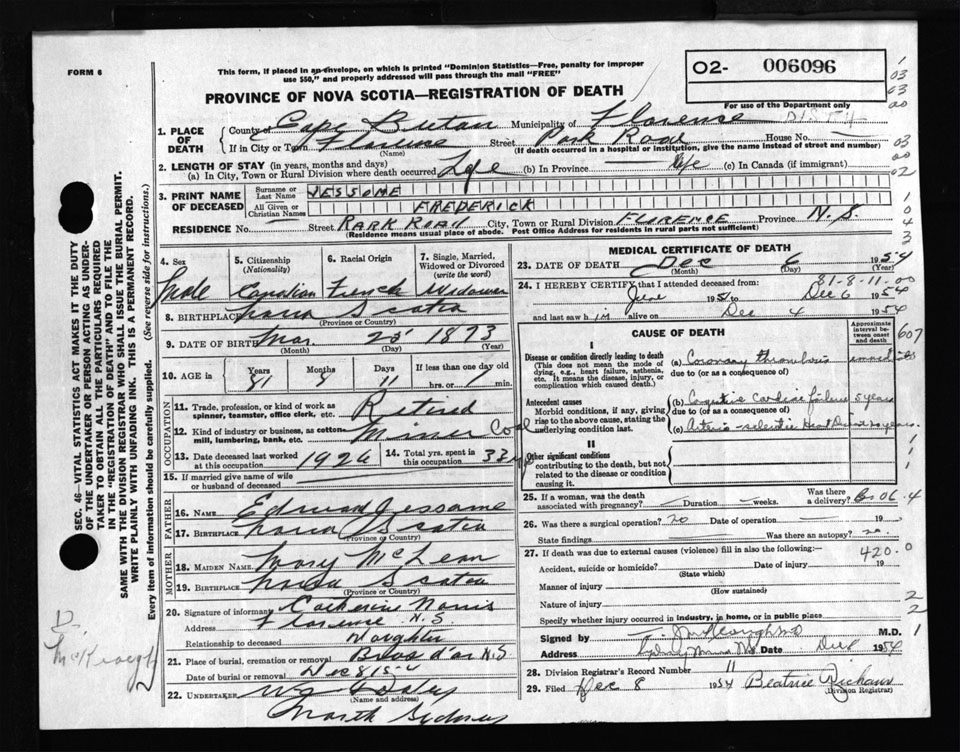 FORM 6
This form, if placed in an envelope, on which is printed "Dominion Statistics—Free, penalty for improper
use $50," and properly addressed will pass through the mail "FREE"
O2- 006096
For use of the Department only
PROVINCE OF NOVA SCOTIA—REGISTRATION OF DEATH
1. PLACE OF DEATH County of Cape Breton Municipality of Florence
If in City or Town Florence (Name) Street Park Road House No.
(If death occurred in a hospital or institution, give the name instead of street and number)
2. LENGTH OF STAY (in years, months and days)
(a) In City, Town or Rural Division where death occurred Life (b) In Province Life (c) In Canada (if immigrant)
3. PRINT NAME OF DECEASED Surname or Last Name JESSOME
All Given or Christian Names FREDERICK
RESIDENCE No. Street PARK ROAD City, Town or Rural Division FLORENCE Province N.S.
(Residence means usual place of abode. Post Office Address for residents in rural parts not sufficient)
4. Sex Male
5. Citizenship (Nationality) Canadian
6. Racial Origin French
7. Single, Married, Widowed or Divorced (write the word) Widower
8. BIRTHPLACE Nova Scotia
(Province or Country)
9. DATE OF BIRTH Mar. 25 1873
(Month) (Day) (Year)
10. AGE is Years 81 Months 8 Days 11 If less than one day hrs. or min.
OCCUPATION
11. Trade, profession, or kind of work as spinner, teamster, office clerk, etc. Retired
12. Kind of industry or business, as cotton-mill, lumbering, bank, etc. Miner Coal
13. Date deceased last worked at this occupation 1926 14. Total yrs. spent in this occupation 33 yrs
15. If married give name of wife or husband of deceased
FATHER
16. NAME Edward Jessome
17. BIRTHPLACE Nova Scotia
(Province or Country)
MOTHER
18. MAIDEN NAME Mary McLean
19. BIRTHPLACE Nova Scotia
(Province or Country)
20. Signature of informant Catherine Norris
Address Florence N.S
Relationship to deceased Daughter
21. Place of burial, cremation or removal Bras d'or N.S.
Date of burial or removal Dec 8
22. UNDERTAKER
(Name and address)
North Sydney
MEDICAL CERTIFICATE OF DEATH
23. DATE OF DEATH Dec 6 1954
(Month) (Day) (Year)
81-8-11
24. I HEREBY CERTIFY that I attended deceased from:
June 1951 to Dec 6 1954
and last saw him alive on Dec 4 1954
CAUSE OF DEATH
Approximate interval between onset and death
607
I
Disease or condition directly leading to death
(This does not mean the mode of dying, e.g., heart failure, asthenia, etc. It means the disease, injury, or complication which caused death.)
(a) Coronary thrombosis
due to (or as a consequence of)
Antecedent causes
Morbid conditions, if any, giving rise to the above cause, stating the underlying condition last.
(b) Congestive cardiac failure 5 years
due to (or as a consequence of)
(c) Arterio-sclerotic Heart Disease years.
II
Other significant conditions
contributing to the death, but not related to the disease or condition causing it.
25. If a woman, was the death associated with pregnancy? Duration weeks. Was there a delivery?
26. Was there a surgical operation? no Date of operation 19
State findings Was there an autopsy? no
27. If death was due to external causes (violence) fill in also the following:—
420.0
Accident, suicide or homicide? Date of injury 19
(State which)
Manner of injury
(How sustained)
Nature of injury
Specify whether injury occurred in industry, in home, or in public place
Signed by M.D.
Address Date Dec 8 1954
28. Division Registrar's Record Number 11
29. Filed Dec 8 1954 Beatrice
(Division Registrar)
SEC. 46—VITAL STATISTICS ACT MAKES IT THE DUTY
OF THE UNDERTAKER OR PERSON ACTING AS UNDER-
TAKER TO OBTAIN ALL THE PARTICULARS REQUIRED
IN THE "REGISTRATION OF DEATH" AND TO FILE THE
SAME WITH THE DIVISION REGISTRAR WHO SHALL ISSUE THE BURIAL PERMIT.
WRITE PLAINLY WITH UNFADING INK. THIS IS A PERMANENT RECORD.
Every item of information should be carefully supplied. (See reverse side for instructions.)